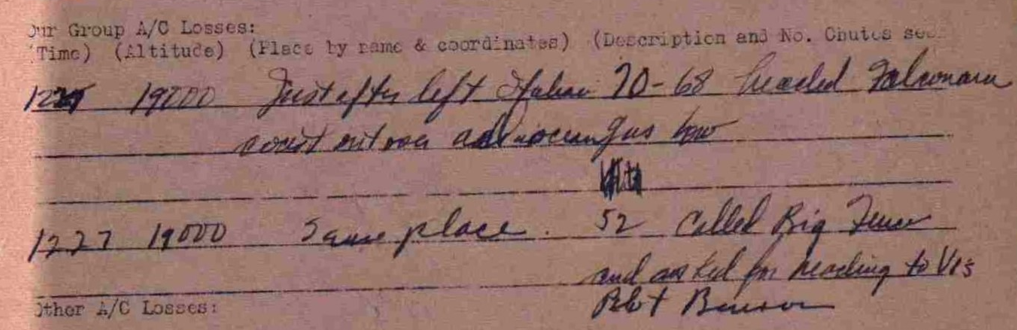 Our Group A/C Losses:
(Time) (Altitude) (Place by name & coordinates) (Description and No. Chutes see
1225 19000 Just after left Italian 70-68 headed Falconara
coast out over
1227 19000 Same place. 52 called Big Fence
and asked for heading to Vis
Pilot Benson
Other A/C Losses: